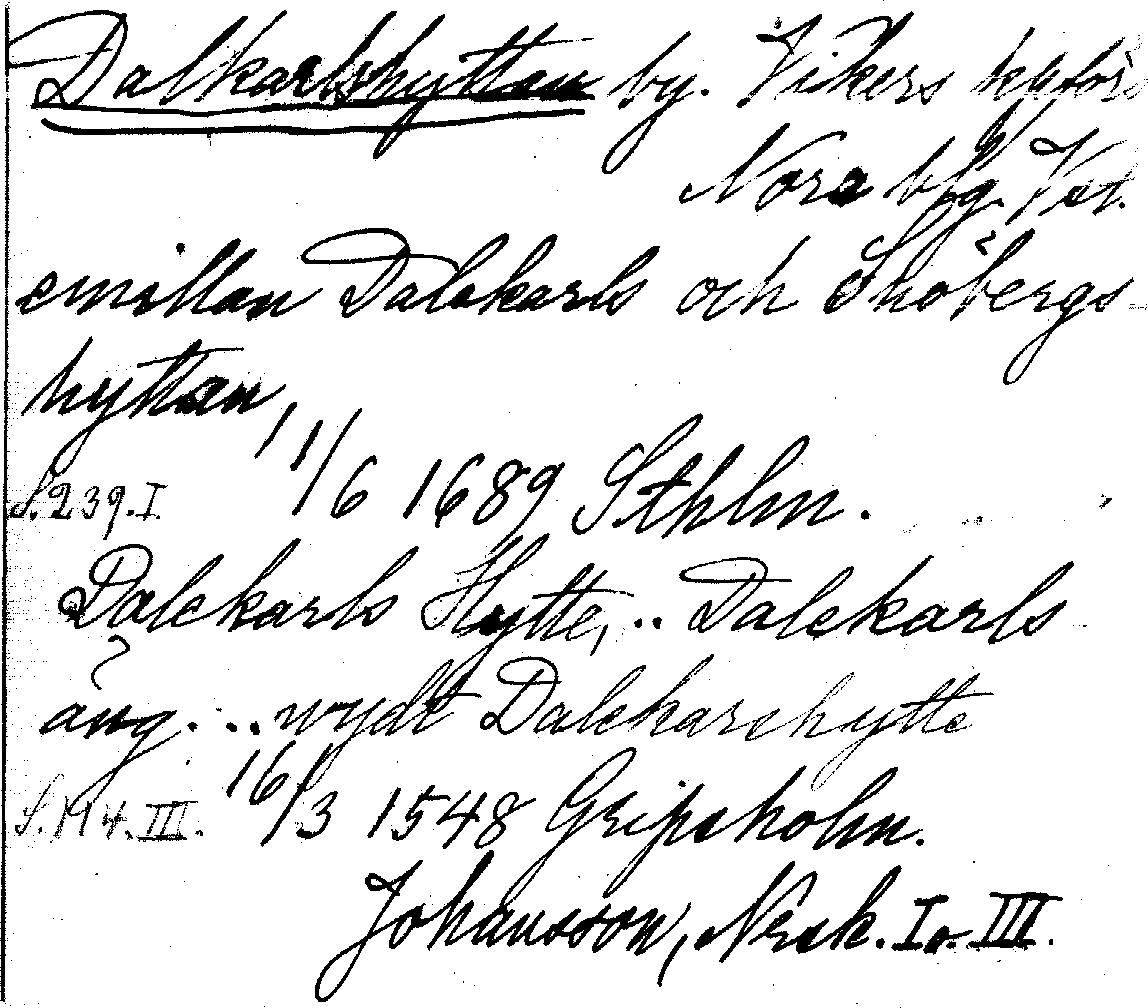 Dalkarlshyttan by. Vikers kpförs
Nora blg. Vst.
emillan Dalekarls och Sköbergs
hyttan,
S. 239. I. 11/6 1689 Sthlm.
Dalekarls Hytte, .. Dalekarls
äng... wydt Dalekarshytte
S. 194. III. 16/3 1548 Gripsholm.
Johansson, Nersk. I o. III.